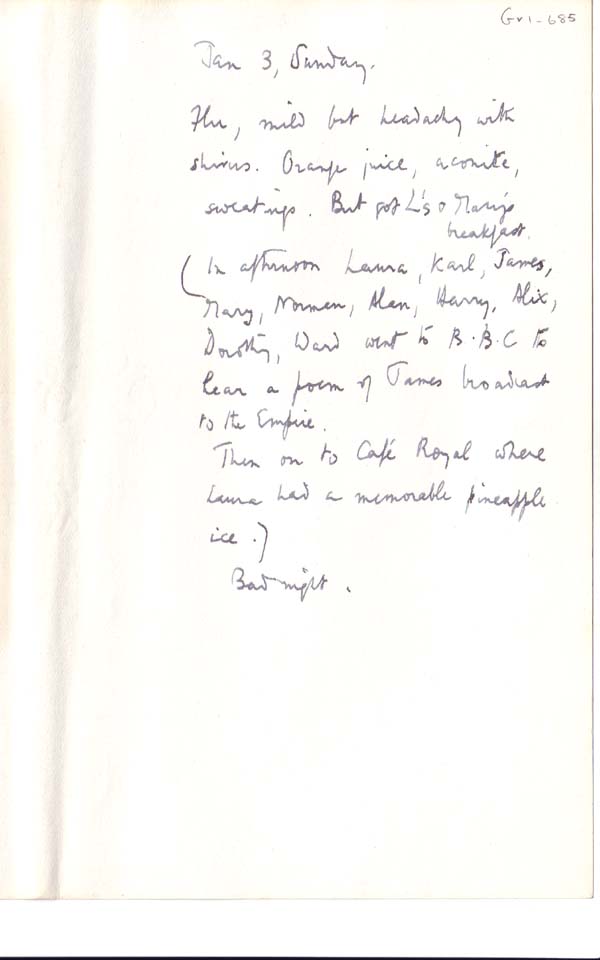 Gv1-685
Jan 3, Sunday.
Flu, mild but headachy with
shivers. Orange juice, aconite,
sweatings. But got L's & Mary's
breakfast.
(In afternoon Laura, Karl, James,
Mary, Norman, Alan, Harry, Alix,
Dorothy, Ward went to B.B.C to
hear a poem of James broadcast
to the Empire.
Then on to Café Royal where
Laura had a memorable pineapple
ice.)
Bad night.